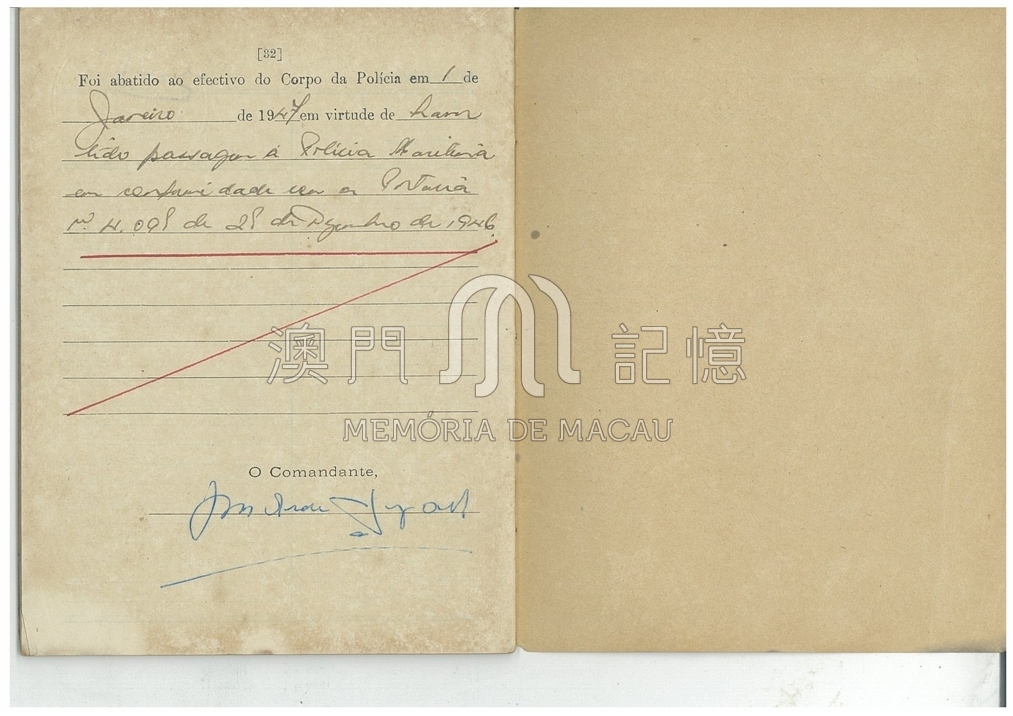 [32]
Foi abatido ao efectivo do Corpo da Polícia em 1 de
Janeiro de 1947 em virtude de haver
tido passagem á Polícia Maritima
em conformidade com a Portaria
nº 4.098 de 28 de Dezembro de 1946.
澳門 記憶
MEMÓRIA DE MACAU
O Comandante,